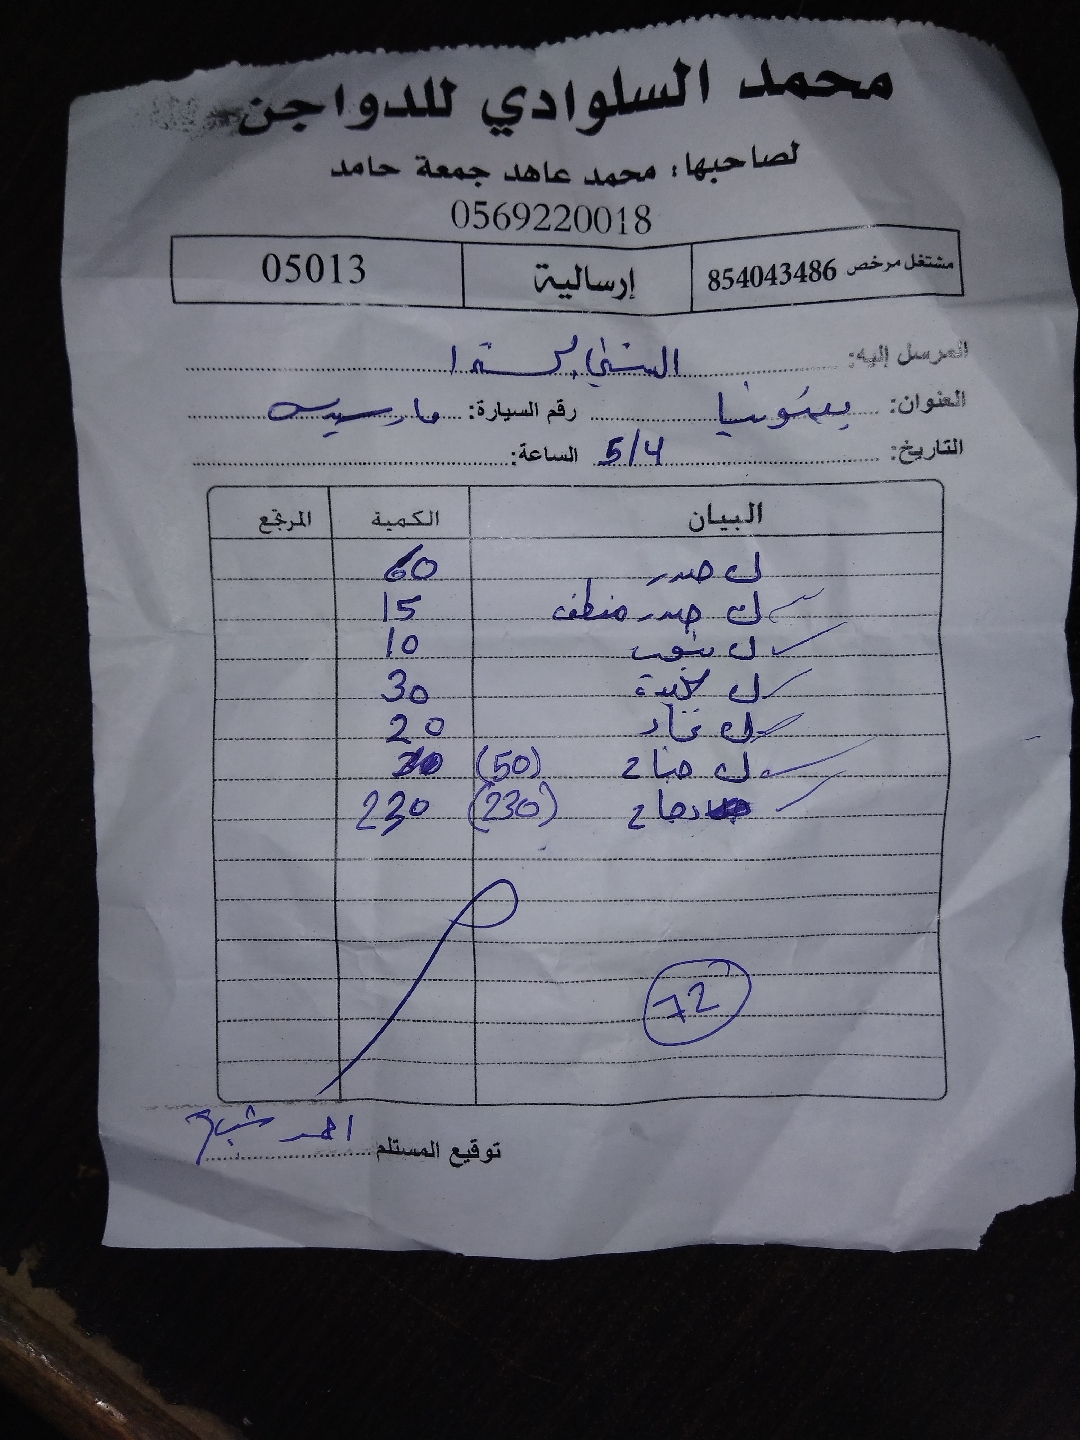 محمد السلوادي للدواجن
لصاحبها: محمد عاهد جمعة حامد
0569220018
مشتغل مرخص 854043486 إرسالية 05013
المرسل إليه:
العنوان: رقم السيارة:
التاريخ: 5/4 الساعة:
البيان الكمية المرتجع
ك صدر 60
ك صدر منظف 15
ك 10
ك 30
ك 20
ك جناح (50)
دجاج (230) 230
72
توقيع المستلم احمد